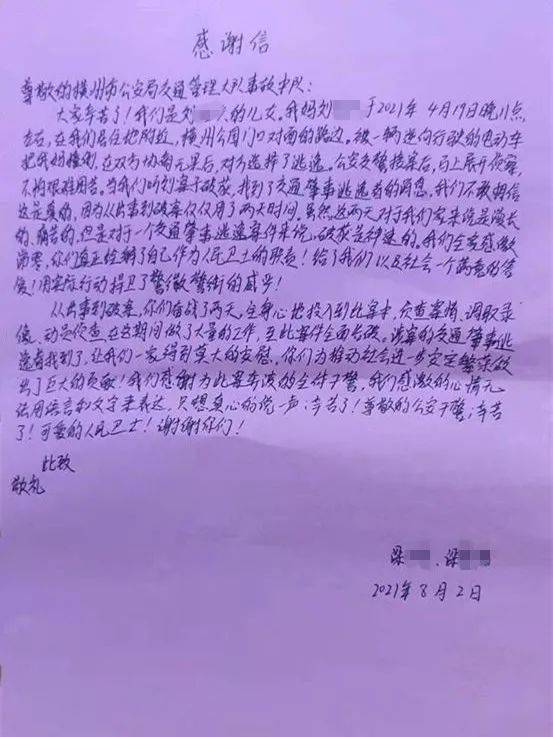 感谢信
尊敬的横州市公安局交通管理大队事故中队：
大家辛苦了！我们是刘 的儿女，我妈刘 于2021年4月19日晚八点
左右，在我们居住地附近，横州公园门口对面的路边。被一辆逆向行驶的电动车
把我妈撞倒，在双方协商无果后，对方选择了逃逸。公安交警接案后，马上展开侦察，
不怕艰难困苦。当我们听到案子破获，找到了交通肇事逃逸者的消息，我们不敢相信
这是真的，因为从出事到破案仅仅用了两天时间，虽然这两天对于我们家来说是漫长
的、痛苦的，但是对于一个交通肇事逃逸案件来说，破获是神速的。我们全家感激
涕零，你们真正经得了自己作为人民卫士的职责！给了我们以及社会一个满意的答
复！用实际行动捍卫了警徽警衔的威号！
从出事到破案，你们奋战了两天，全身心地投入到此案中，负查案情、调取录
像、动员侦查，在这期间做了大量的工作，至此案件全面告破。涉案的交通肇事逃
逸者找到了，让我们一家得到莫大的安慰，你们为推动社会进一步安定繁荣做
出了巨大的贡献！我们感谢为此案奔波的全体干警，我们感激的心情无
法用语言和文字来表达，只想真心的说一声：辛苦了！尊敬的公安干警，辛苦
了！可爱的人民卫士！谢谢你们！
此致
敬礼
梁 、梁
2021年8月2日